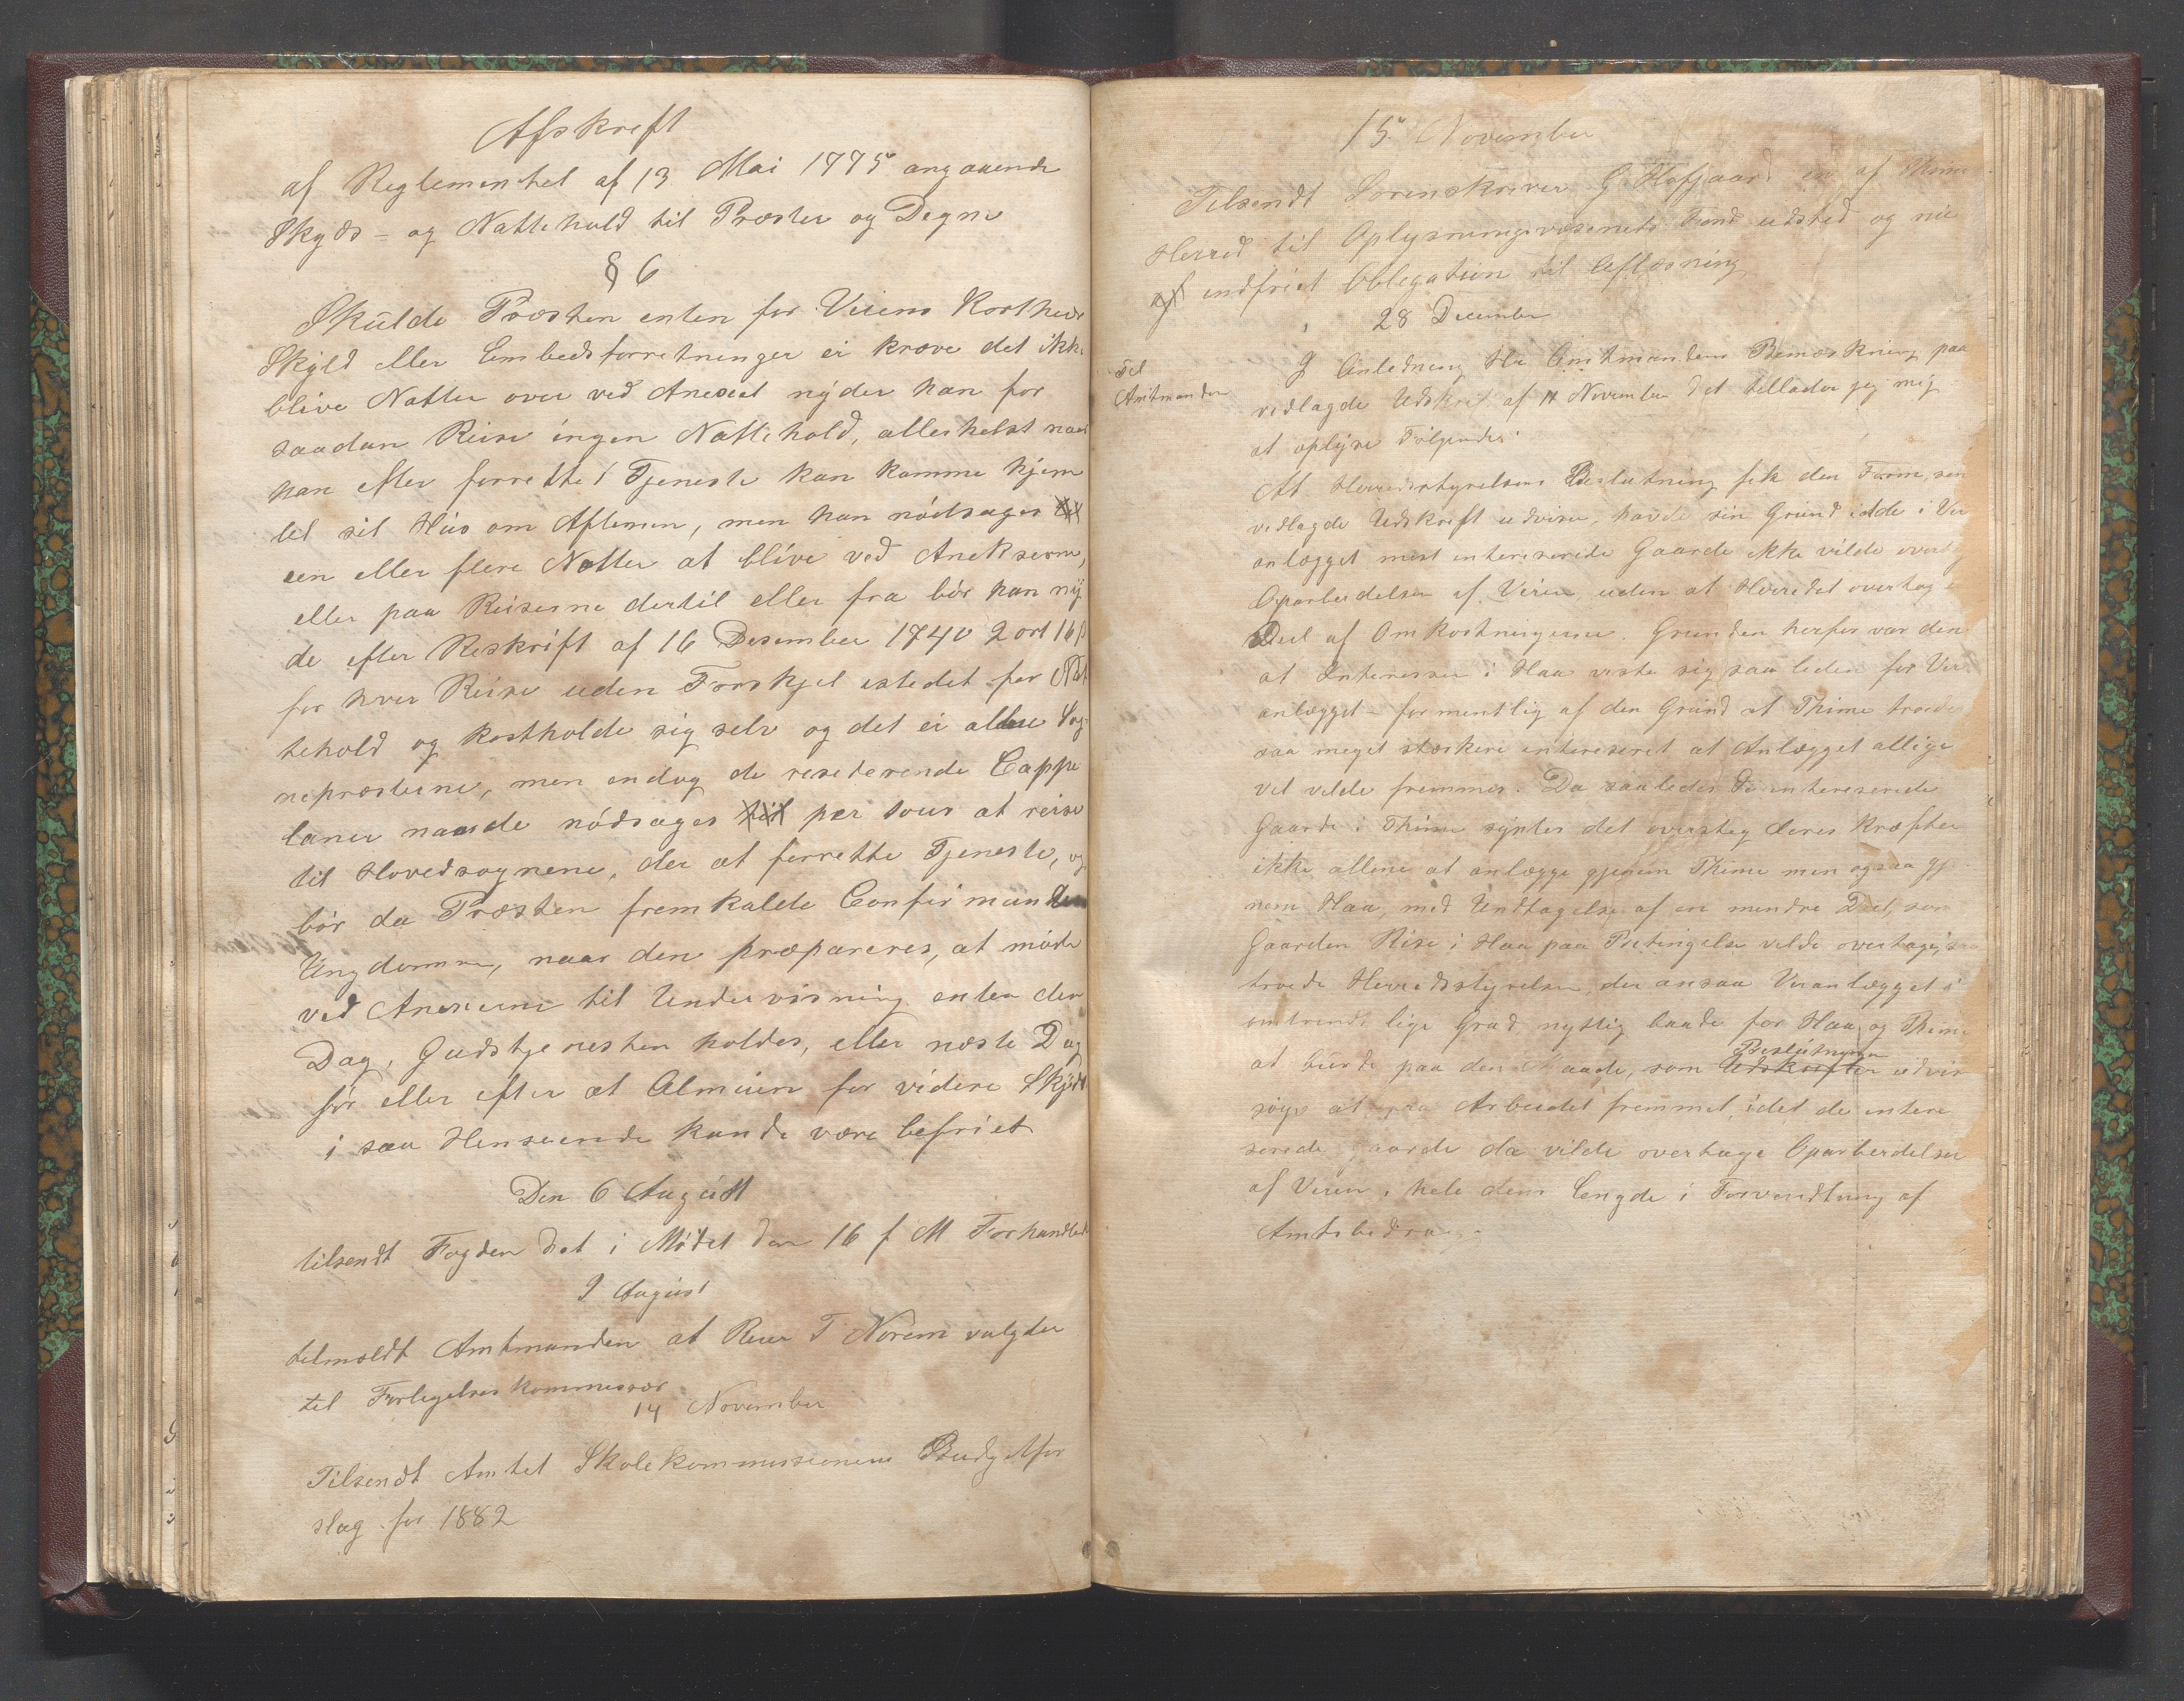 Afskreft
af Reglementet af 13 Mai 1775 angaaende
Skyds- og Nattehold til Præster og Degne
§ 6
Skulde Præsten enten for Veiens Kortheds
Skyld eller Embedsforretninger ei kræve det ikke
blive Natten over ved Anexet nyder han for
saadan Reise ingen Nattehold, allerhelst naar
han efter forrettet Tjeneste kan komme hjem
tel sit Hus om Aftenen, men han nødsages til
een eller flere Nætter at blive ved Anekserne,
eller paa Reiserne dertil eller fra bør han ny
de efter Reskrift af 16 Desember 1740 2 ort 16 ß
for hver Reise uden Forskjel istedet for Nat
tehold og kostholde sig selv og det ei allene Sog
nepræsterne, men endog de residerende Cappe
laner naar de nødsages til per vous at reise
til Hovedsognene, der at forrette Tjeneste, og
bør da Præsten fremkalde Confirmanden
Ungdommen, naar den præpareres, at møde
ved Anexerne til Undervisning enten den
Dag, Gudstjenesten holdes, eller næste Dag
før eller efter at Almuen for videre Skyds
i saa Henseende kunde være befriet
Den 6 August
tilsendt Fogden det i Mødet den 16 f M Forhandlede
9 August
telmeldt Amtmanden at Reier T Norem valgtes
til Forligelseskommessær
14 November
Tilsendt Amtet Skolekommissionens Budgetfor
slag for 1882
15 November
Tilsendt Sorenskriver G Hofgaard en af Thime
Herred til Oplysningsvæsenets Fond udsted og nu
af indfriet Oblegation til Aflæsning
28 December
Tel
Amtmanden
I Anledning Hr Amtmandens Bemærkning paa
vedlagde Udskrift af 11 November d et tellader jeg mig
at oplyse Følgende:
At Herredsstyrelsens Beslutning fik den Form, som
vedlagde Udskreft udviser, havde sin Grund idde i Vei
anlægget mest interesserede Gaarde ikke vilde overt
Oparbeidelsen af Veien, uden at Herredet overtog e
Deel af Omkostningerne. Grunden herfor var den
at Interessen i Haa viste sig saa leden for Vei
anlægget - formentlig af den Grund at Thime troedes
saa meget stærkere interesseret at Anlægget allige
vel vilde fremmes. Da saaledes de interesserede
Gaarde i Thime syntes det oversteg deres Kræfter
ikke allene at anlægge gjenem Thime men ogsaa gj
nem Haa, med Undtagelse af en mindre Deel, som
Gaarden Rise i Haa paa Betingelse vilde overtage, saa
troede Herredsstyrelsen, der ansaa Veianlægget i
omtrendt lige Grad nyttig baade for Haa og Thime
at burde paa den Maade, som Udskriften Beslutningen udvis
søge at faa Arbeidet fremmet, idet de intere
serede Gaarde da vilde overtage Oparbeidelsen
af Veien i hele dens Længde i Forvendtning af
Amtsbidrag